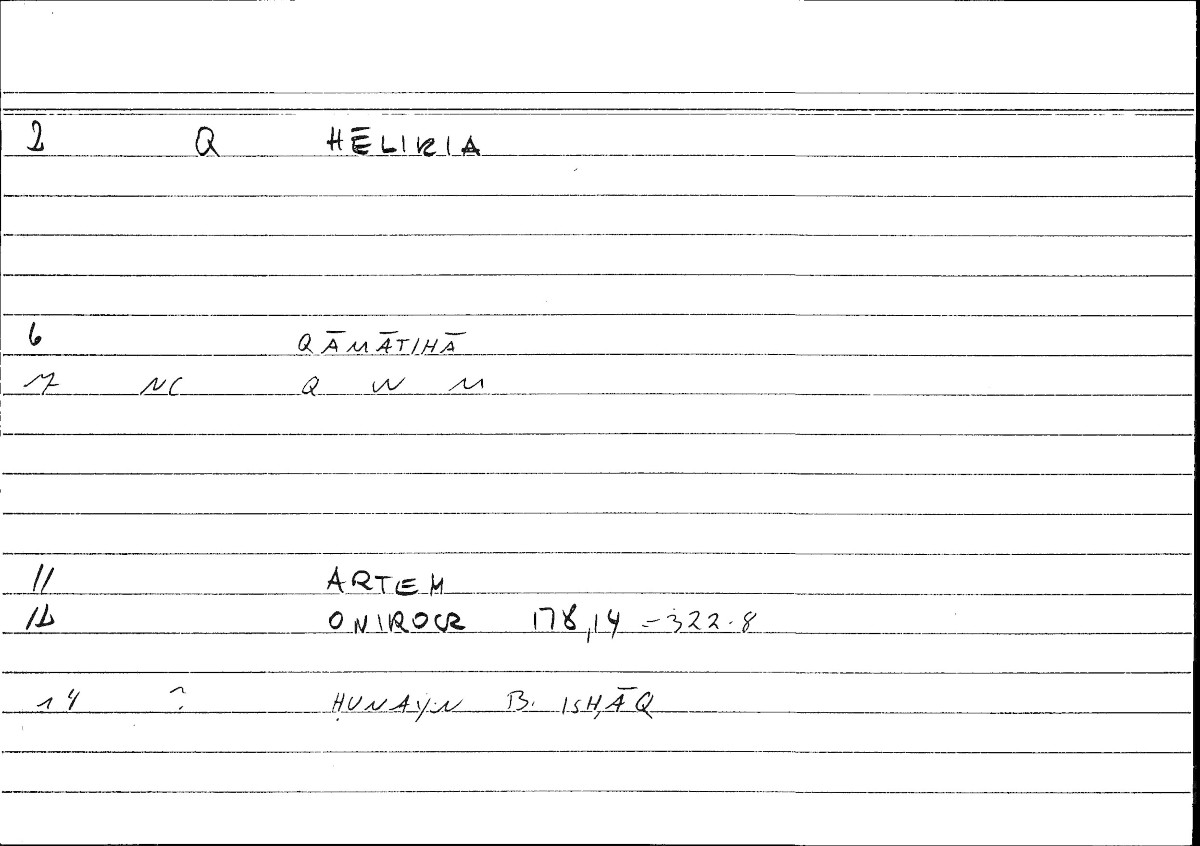 2 Q HĒLIKIA
6 QĀMĀTIHĀ
7 NC Q W M
11 ARTEM
12 ONIROCR 178,14 = 322.8
14 ? ḤUNAYN B. ISḤĀQ